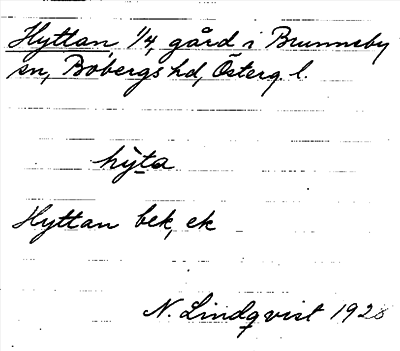 Hyttan, 1/4, gård i Brunneby
sn, Bobergs hd, Österg. l.
hyta
Hyttan bek, ek
N. Lindqvist 1928